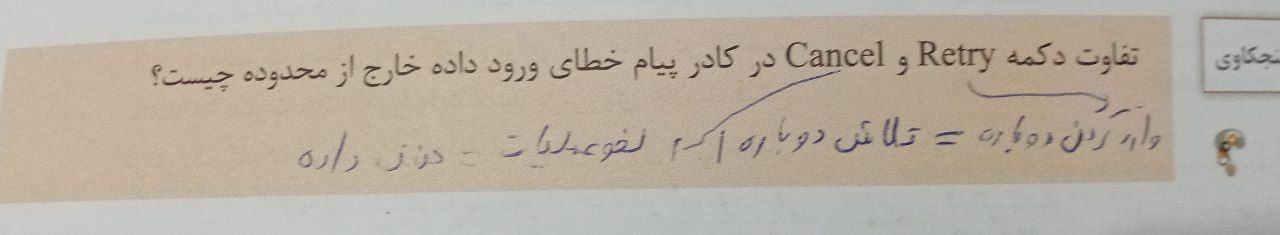 تفاوت دکمه Retry و Cancel در کادر پیام خطای ورود داده خارج از محدوده چیست؟
وارد کردن دوباره = تلاش دوباره لغو عملیات =